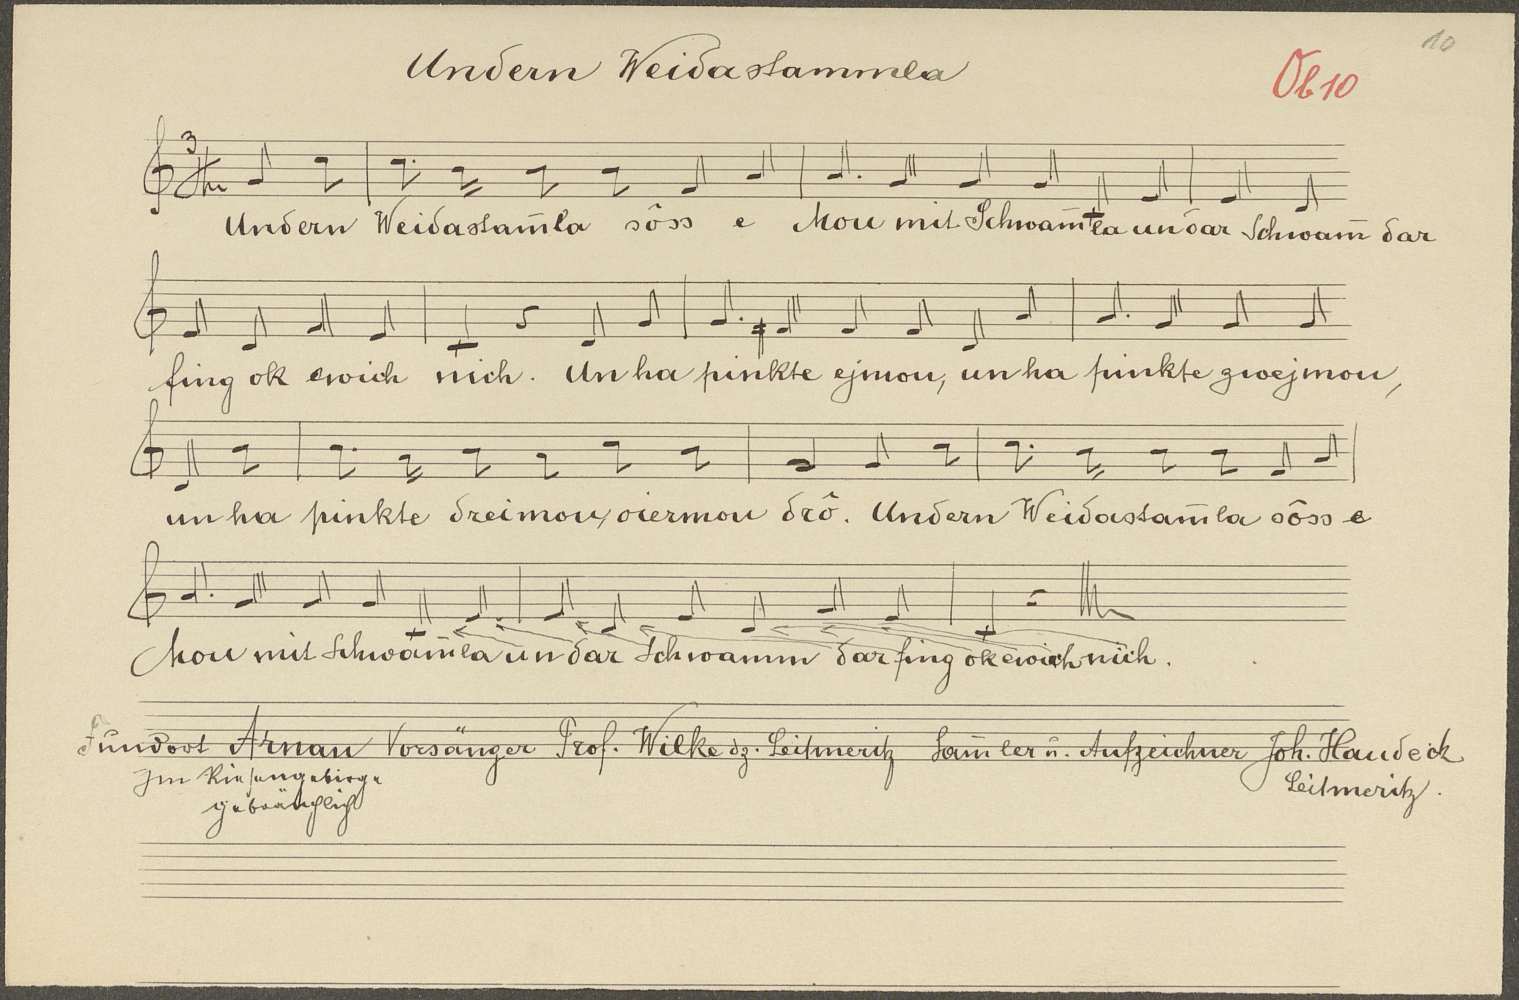 10
Undern Weidastammla
Ob 10
Undern Weidastam̄la sôss e Mou mit Schwam̄la un dar Schwam̄ dar
fing ok ewich nich. Un ha pinkte ejmou, un ha pinkte zwejmou,
un ha pinkte dreimou, viermou drô. Undern Weidastam̄la sôss e
Mou mit Schwam̄la un dar Schwamm dar fing ok ewich nich.
Fundort Arnau Vorsänger Prof. Wilke dz. Leitmeritz Sam̄ler u. Aufzeichner Joh. Haudeck
Im Riesengebirge
gebräuchlich
Leitmeritz.